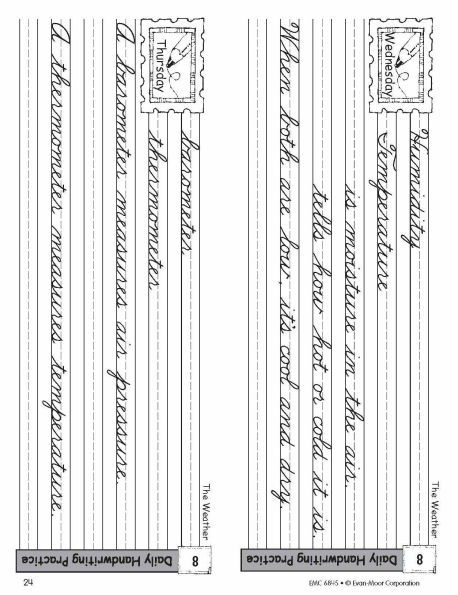 Wednesday
The Weather
Humidity
is moisture in the air.
Temperature
tells how hot or cold it is.
When both are low, it's cool and dry.
8
Daily Handwriting Practice
Thursday
The Weather
barometer
thermometer
A barometer measures air pressure.
A thermometer measures temperature.
8
Daily Handwriting Practice
24
EMC 6845 • © Evan-Moor Corporation